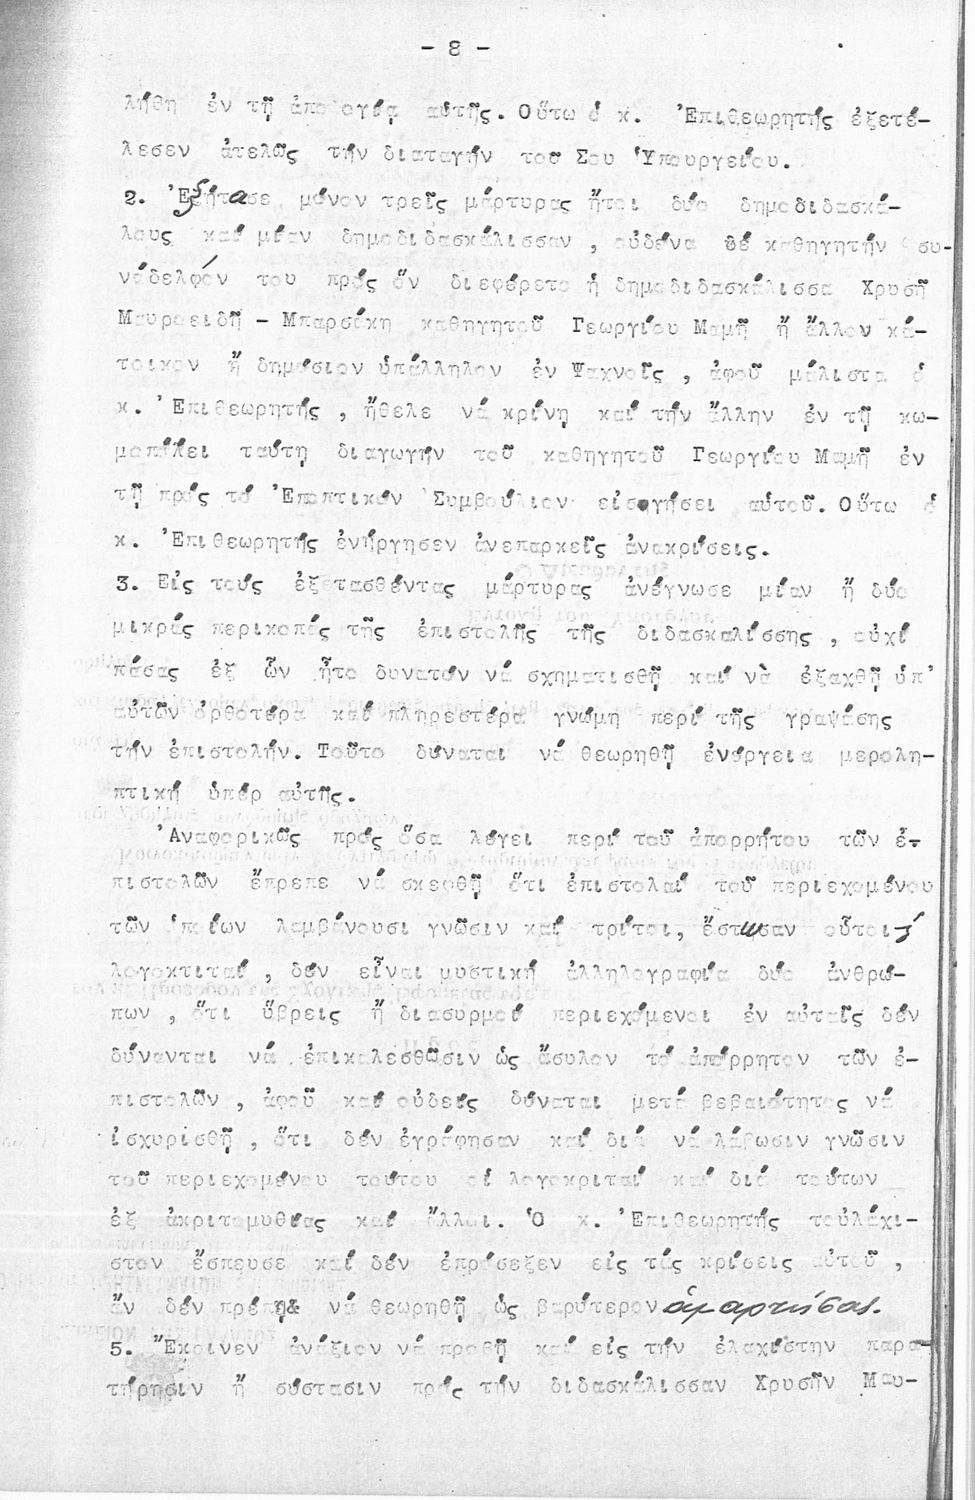 - 8 -
λήθη ἐν τῇ ἀπολογίᾳ αὐτῆς. Οὕτω ὁ κ. Ἐπιθεωρητής ἐξετέ-
λεσεν ἀτελῶς τήν διαταγήν τοῦ Σου Ὑπουργείου.
2. Ἐξήτασε μόνον τρεῖς μάρτυρας ἤτοι δύο δημοδιδασκά-
λους καί μίαν δημοδιδασκάλισσαν , οὐδένα δέ καθηγητήν συ-
νάδελφόν του πρός ὅν διεφέρετο ἡ δημοδιδασκάλισσα Χρυσῆ
Μαυροειδῆ - Μπαρσάκη καθηγητοῦ Γεωργίου Μαμῆ ἤ ἄλλον κά-
τοικον ἤ δημόσιον ὑπάλληλον ἐν Ψαχνοῖς , ἀφοῦ μάλιστα ὁ
κ. Ἐπιθεωρητής , ἤθελε νά κρίνῃ καί τήν ἄλλην ἐν τῇ κω-
μοπόλει ταύτῃ διαγωγήν τοῦ καθηγητοῦ Γεωργίου Μαμῆ ἐν
τῇ πρός τό Ἐποπτικόν Συμβούλιον εἰσηγήσει αὐτοῦ. Οὕτω ὁ
κ. Ἐπιθεωρητής ἐνήργησεν ἀνεπαρκεῖς ἀνακρίσεις.
3. Εἰς τούς ἐξετασθέντας μάρτυρας ἀνέγνωσε μίαν ἤ δύο
μικράς περικοπάς τῆς ἐπιστολῆς τῆς διδασκαλίσσης , οὐχί
πάσας ἐξ ὧν ἦτο δυνατόν νά σχηματισθῇ καί νὰ ἐξαχθῇ ὑπ'
αὐτῶν ὀρθοτέρα καί πληρεστέρα γνώμη περί τῆς γραψάσης
τήν ἐπιστολήν. Τοῦτο δύναται νά θεωρηθῇ ἐνέργεια μερολη-
πτική ὑπέρ αὐτῆς.
Ἀναφορικῶς πρός ὅσα λέγει περί τοῦ ἀπορρήτου τῶν ἐ-
πιστολῶν ἔπρεπε νά σκεφθῇ ὅτι ἐπιστολαί τοῦ περιεχομένου
τῶν ὁποίων λαμβάνουσι γνῶσιν καί τρίτοι, ἔστωσαν οὗτοι
λογοκτιταί , δέν εἶναι μυστική ἀλληλογραφία δύο ἀνθρώ-
πων , ὅτι ὕβρεις ἤ διασυρμοί περιεχόμενοι ἐν αὐταῖς δέν
δύνανται νά ἐπικαλεσθῶσιν ὡς ἄσυλον τό ἀπόρρητον τῶν ἐ-
πιστολῶν , ἀφοῦ καί οὐδείς δύναται μετά βεβαιότητος νά
ἰσχυρισθῇ , ὅτι δέν ἐγράφησαν καί διά νά λάβωσιν γνῶσιν
τοῦ περιεχομένου τούτου οἱ λογοκριταί καί διά τούτων
ἐξ ἀκριτομυθίας καί ἄλλοι. Ὁ κ. Ἐπιθεωρητής τοὐλάχι-
στον ἔσπευσε καί δέν ἐπρόσεξεν εἰς τάς κρίσεις αὐτοῦ ,
ἄν δέν πρέπῃ& νά θεωρηθῇ ὡς βαρύτερον ἁμαρτήσας.
5. Ἔκρινεν ἀνάξιον νά προβῇ καί εἰς τήν ἐλαχίστην παρα-
τήρησιν ἤ σύστασιν πρός τήν διδασκάλισσαν Χρυσῆν Μαυ-